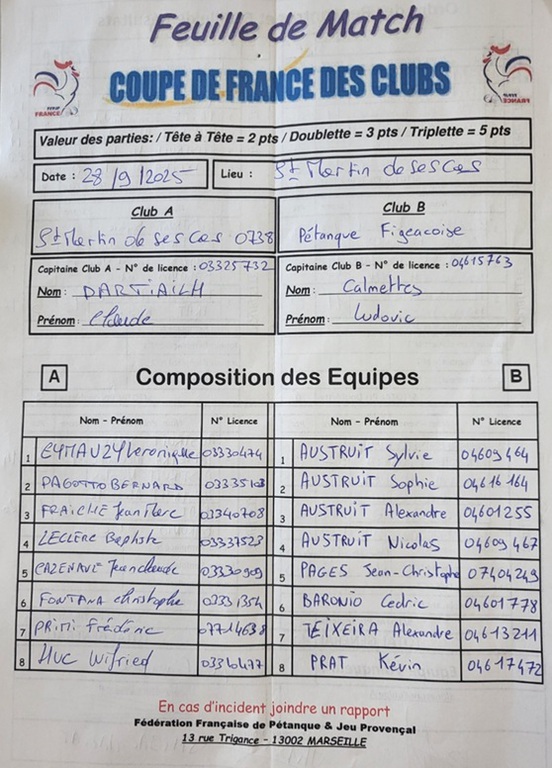 Feuille de Match
COUPE DE FRANCE DES CLUBS
FRANCE
FRANCE
Valeur des parties: / Tête à Tête = 2 pts / Doublette = 3 pts / Triplette = 5 pts
Date : 28/9/2025 Lieu : St Martin de sescas
Club A Club B
St Martin de sescas 0738 Pétanque Figeacoise
Capitaine Club A - N° de licence : 03325732 Capitaine Club B - N° de licence : 04615763
Nom : DARTIAILH Nom : Calmettes
Prénom : Claude Prénom : Ludovic
A Composition des Equipes B
Nom - Prénom N° Licence Nom - Prénom N° Licence
1 EYMAUZY Veronique 03330474 1 AUSTRUIT Sylvie 04609464
2 PAGOTTO BERNARD 2 AUSTRUIT Sophie 04616164
3 FRAICHE Jean Marc 03340708 3 AUSTRUIT Alexandre 04601255
4 LECLERC Baptiste 03337523 4 AUSTRUIT Nicolas 04609467
5 CAZENAVE Jean claude 03330909 5 PAGES Jean-Christophe 07404249
6 FONTANA christophe 03331354 6 BARONIO Cedric 04601778
7 PRIMI Frédéric 7 TEIXEIRA Alexandre 04613211
8 HUC Wilfried 8 PRAT Kévin 04617472
En cas d'incident joindre un rapport
Fédération Française de Pétanque & Jeu Provençal
13 rue Trigance - 13002 MARSEILLE